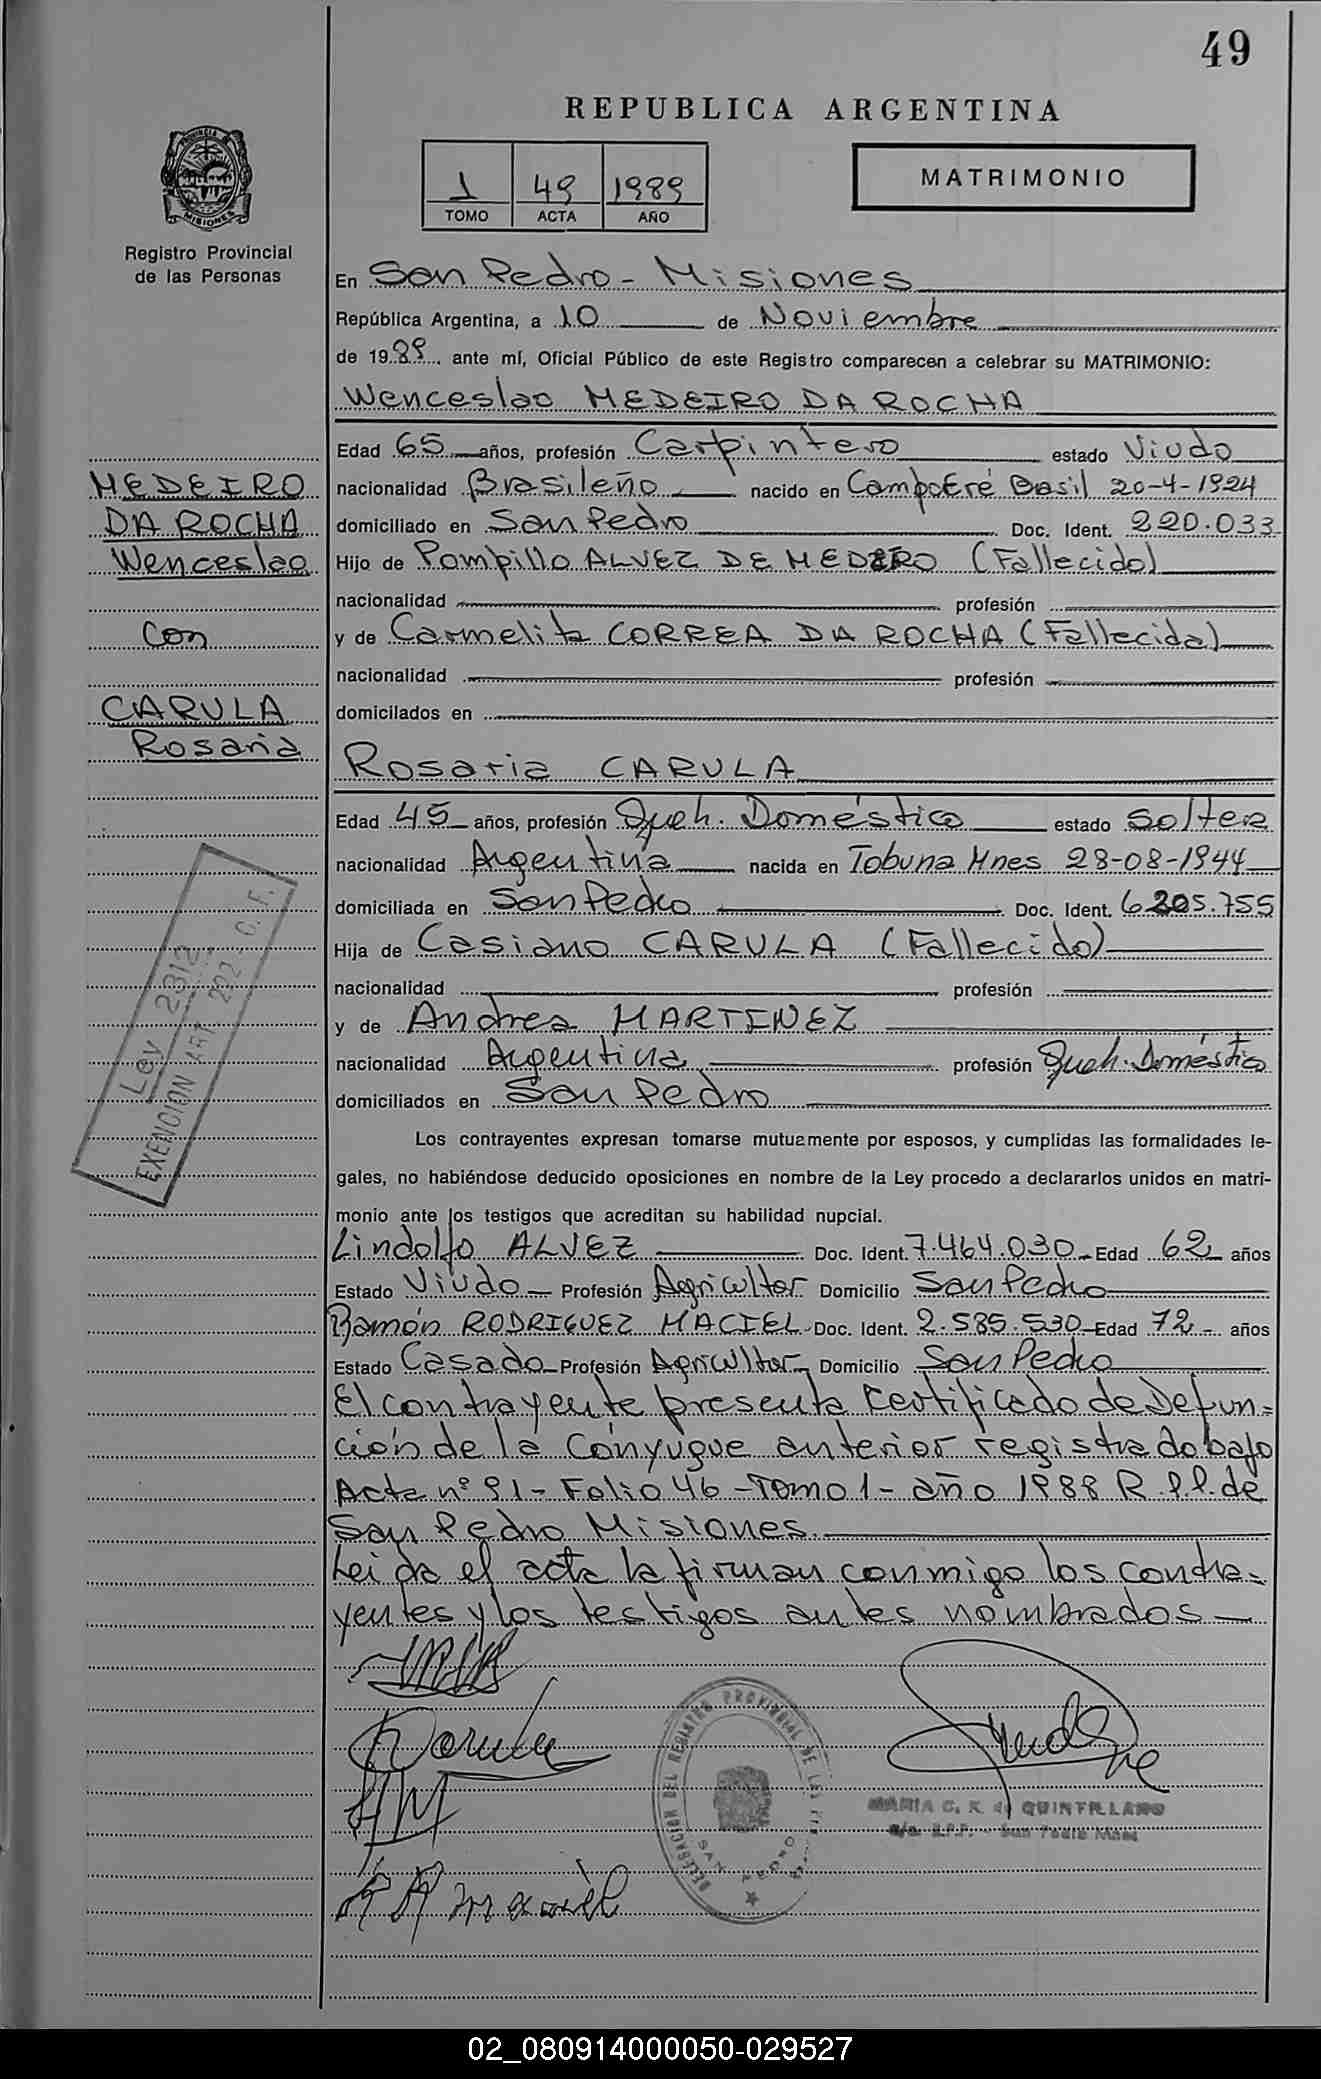 49
REPUBLICA ARGENTINA
1 49 1989
TOMO ACTA AÑO
MATRIMONIO
PROVINCIA DE
MISIONES
Registro Provincial
de las Personas
En San Pedro - Misiones
República Argentina, a 10 de Noviembre
de 1989, ante mí, Oficial Público de este Registro comparecen a celebrar su MATRIMONIO:
Wenceslao MEDEIRO DA ROCHA
Edad 65 años, profesión Carpintero estado Viudo
nacionalidad Brasileño nacido en CampoEré Brasil 20-4-1924
domiciliado en San Pedro Doc. Ident. 220.033
Hijo de Pompillo ALVEZ DE MEDEIRO (Fallecido)
nacionalidad profesión
y de Carmelita CORREA DA ROCHA (Fallecida)
nacionalidad profesión
domicilados en
MEDEIRO
DA ROCHA
Wenceslao
Con
CARULA
Rosaria
Rosaria CARULA
Edad 45 años, profesión Queh. Doméstico estado Soltera
nacionalidad Argentina nacida en Tobuna Mnes 28-08-1944
domiciliada en San Pedro Doc. Ident. 6.205.755
Hija de Casiano CARULA (Fallecido)
nacionalidad profesión
y de Andrea MARTINEZ
nacionalidad Argentina profesión Queh. Doméstico
domiciliados en San Pedro
Ley 2312
EXENCION ART. 202 C. F.
Los contrayentes expresan tomarse mutuamente por esposos, y cumplidas las formalidades le-
gales, no habiéndose deducido oposiciones en nombre de la Ley procedo a declararlos unidos en matri-
monio ante los testigos que acreditan su habilidad nupcial.
Lindolfo ALVEZ Doc. Ident. 7.464.030 Edad 62 años
Estado Viudo Profesión Agricultor Domicilio San Pedro
Ramón RODRIGUEZ MACIEL Doc. Ident. 2.585.530 Edad 72 años
Estado Casado Profesión Agricultor Domicilio San Pedro
El contrayente presenta Certificado de Defun=
ción de la Cónyugue anterior registrado bajo
Acta nº 91 - Folio 46 - Tomo 1 - año 1988 R.P.P. de
San Pedro Misiones.
Leida el acta la firman conmigo los contra=
yentes y los testigos antes nombrados
DELEGACION DEL REGISTRO PROVINCIAL DE LAS
SAN PEDRO
MARIA C. K. de QUINTILLANO
R.P.P. - San Pedro Mnes
R R maciel
02_080914000050-029527